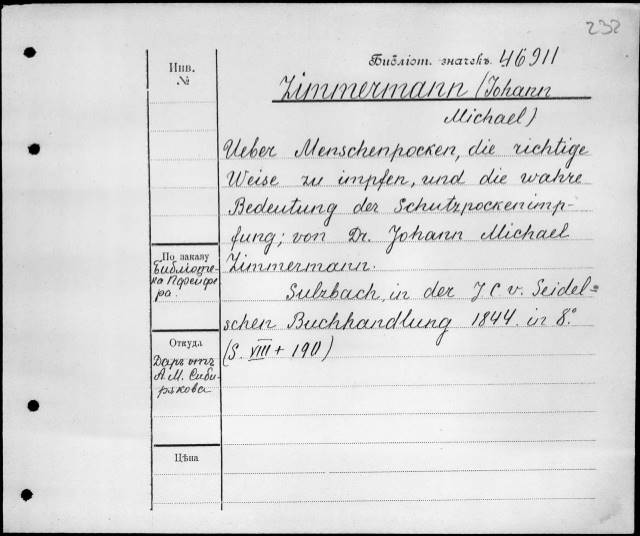 232
Библіот. значекъ 46911
Инв.
№
Zimmermann (Johann
Michael)
Ueber Menschenpocken, die richtige
Weise zu impfen, und die wahre
Bedeutung der Schutzpockenimp-
fung; von Dr. Johann Michael
Zimmermann.
Sulzbach, in der J C v. Seidel=
schen Buchhandlung 1844. in 8.°
(S. VIII + 190)
По заказу
Библіоте-
ка Пфейфе
ра.
Откуда
Даръ отъ
А. М. Сиби-
рякова
Цѣна